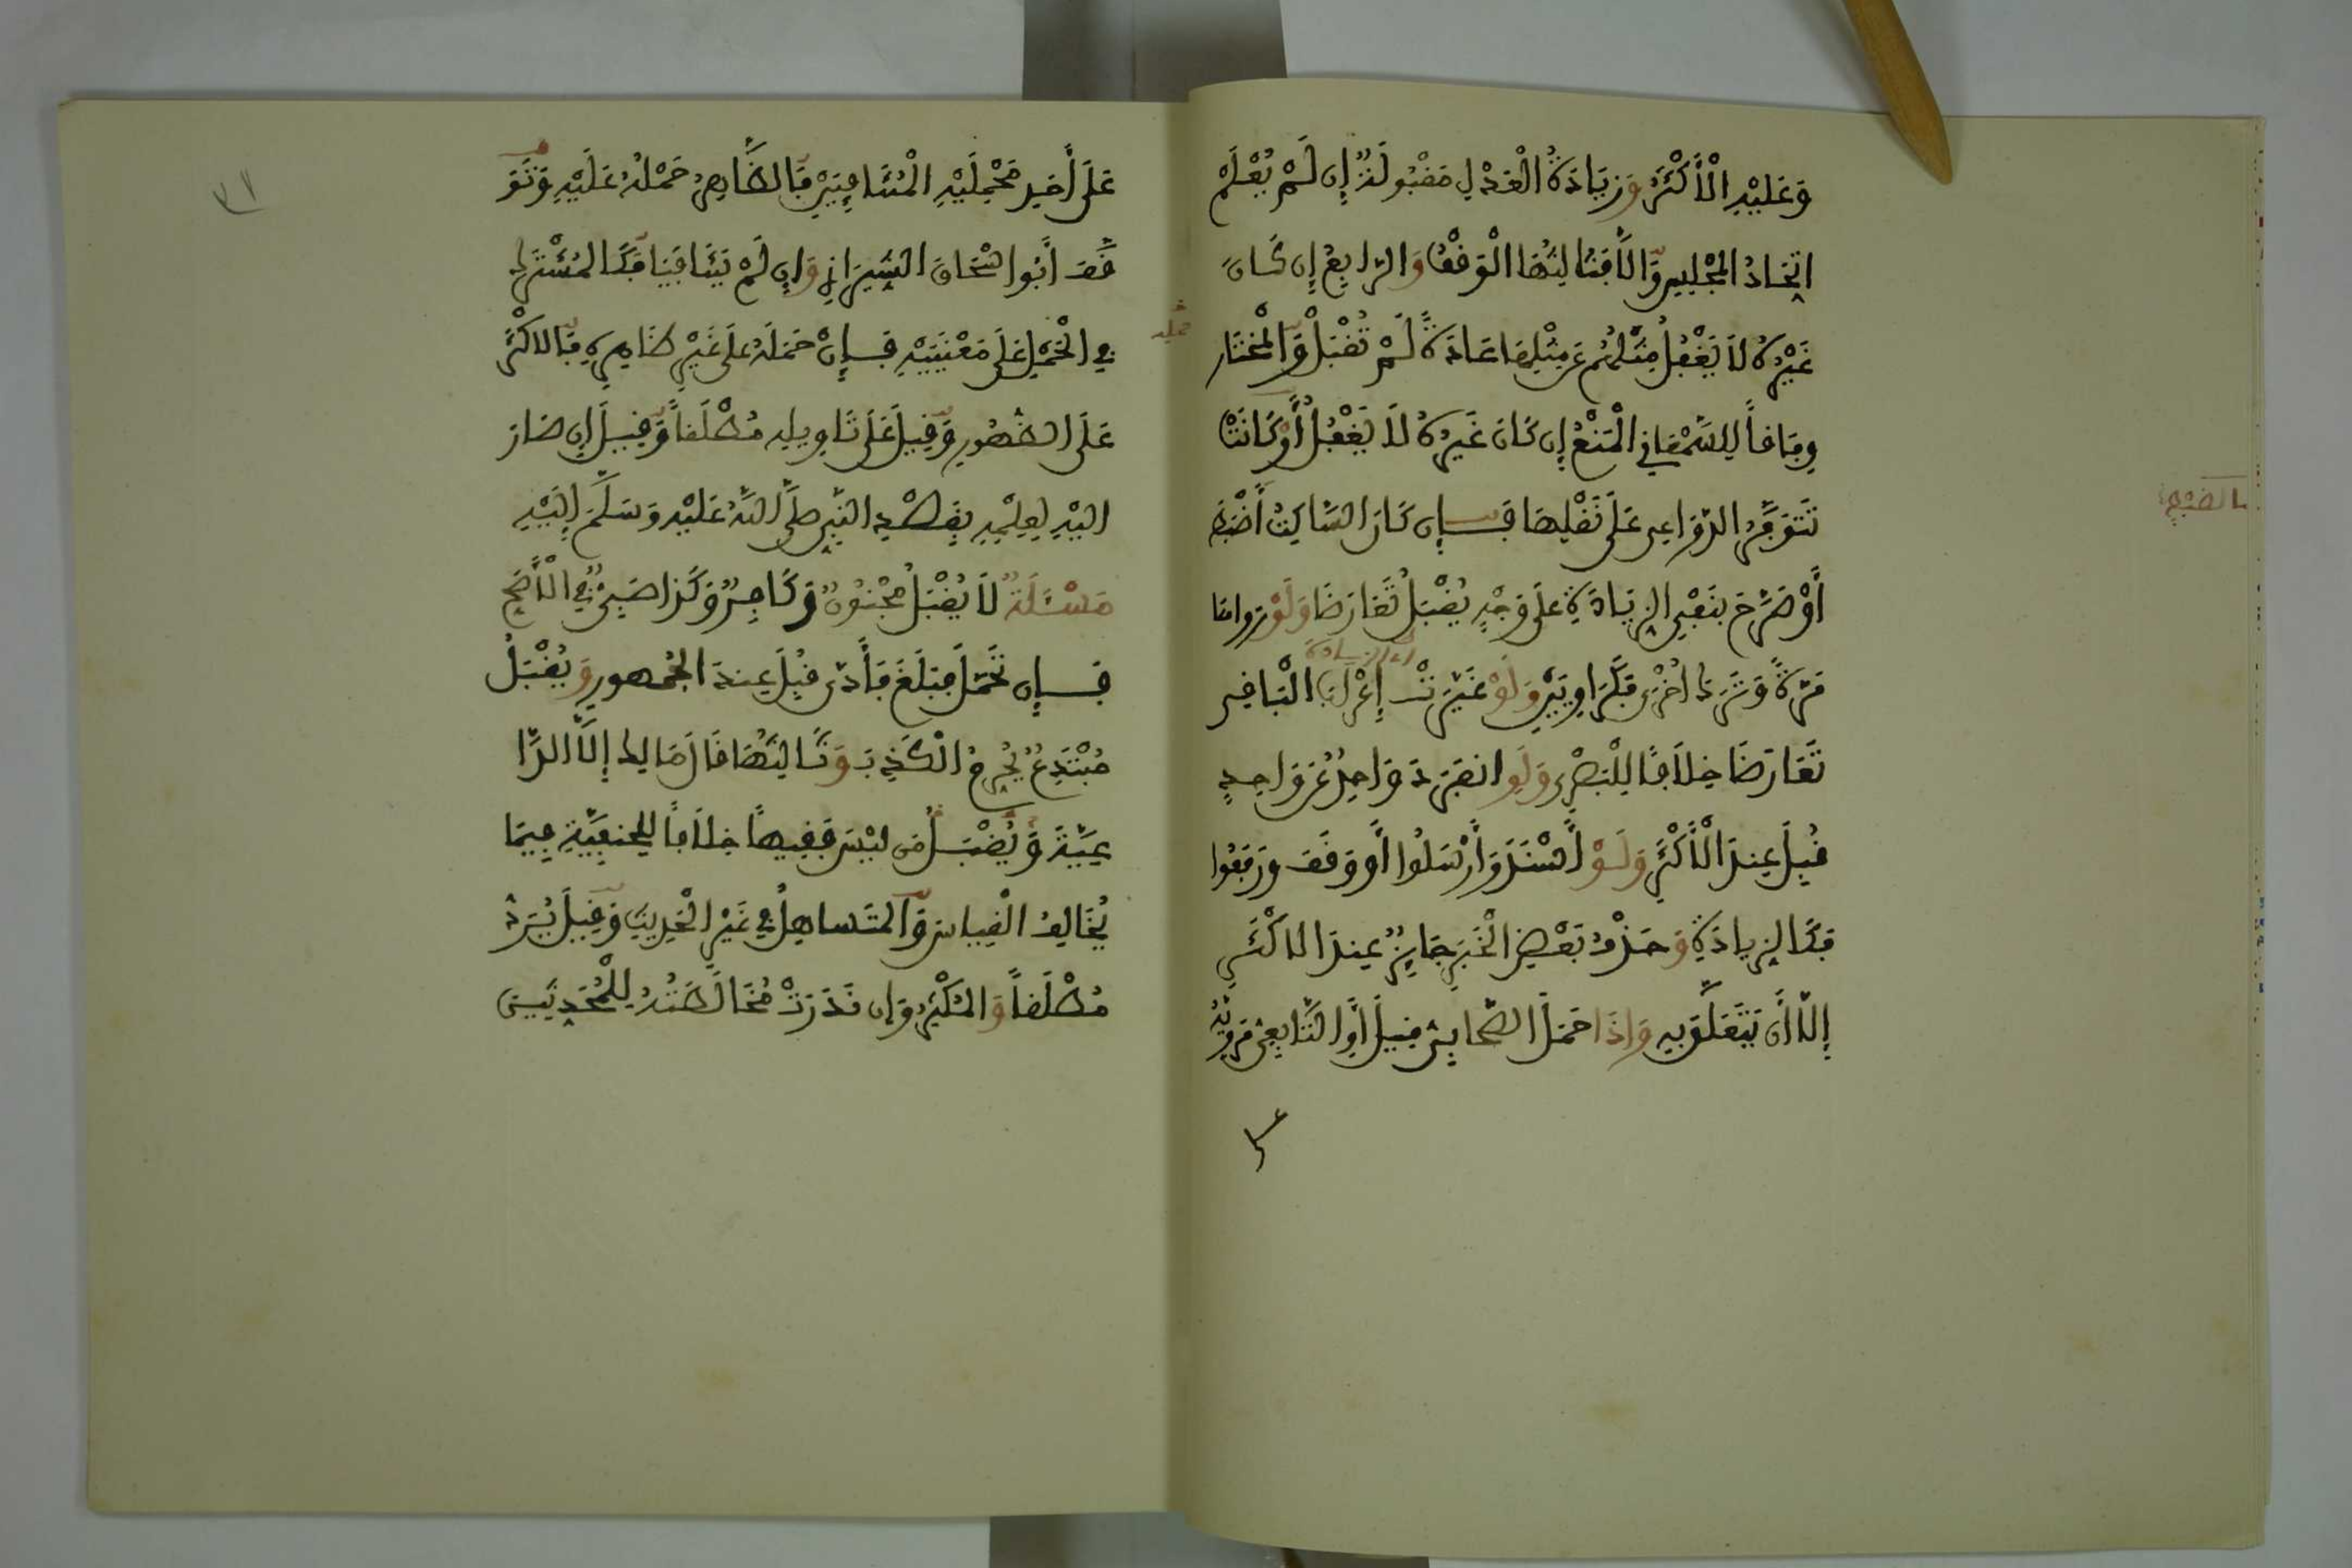 وَعَلَيْهِ الْأَكْثَرُ وَزِيَادَةُ الْعَدْلِ مَقْبُولَةٌ إِن لَمْ يُعْلَمْ
اتِّحَادُ الْمَجْلِسِ وَإِلَّا فَثَالِثُهَا الْوَقْفُ وَالرَّابِعُ إِن كَانَ
غَيْرُهُ لَا يَغْفُلُ مِثْلُهُمْ عَن مِثْلِهَا عَادَةً لَمْ تُقْبَلْ وَالْمُخْتَار
وِفَاقاً لِلسَّمْعَانِي الْمَنْعُ إِن كَانَ غَيْرُهُ لَا يَغْفُلُ أَوْ كَانَتْ
تَتَوَفَّرُ الدَّوَاعِي عَلَى نَقْلِهَا فَإِن كَانَ السَّاكِتُ أَضْبَطَ
أَوْ صَرَّحَ بِنَفْيِ الزِّيَادَةِ عَلَى وَجْهٍ يُقْبَلُ تَعَارَضَا وَلَوْ رَوَاهَا
مَرَّةً وَتَرَكَ أُخْرَى فَكَرَاوِيَيْنِ وَلَوْ غَيَّرَتْ إِعْرَابَ الْبَاقِي
أي الزيادة
تَعَارَضَا خِلَافًا لِلْبَصْرِي وَلَوِ انفَرَدَ وَاحِدٌ عَن وَاحِدٍ
قُبِلَ عِندَ الْأَكْثَرِ وَلَوْ أَسْنَدَ وَأَرْسَلُوا أَو وَقَفَ وَرَفَعُوا
فَكَالزِّيَادَةِ وَحَذْفُ بَعْضِ الْخَبَرِ جَائِزٌ عِندَ الاكْثَرِ
إِلَّا أَن يَتَعَلَّقَ بِهِ وَإِذَا حَمَلَ الصَّحَابِيُّ قِيلَ أَوِ التَّابِعِيُّ مَرْوِيَّهُ
عَلَى أَحَدِ مَحْمِلَيْهِ الْمُتَنَافِيَيْنِ فَالظَّاهِرُ حَمْلُهُ عَلَيْهِ وَتَوَ
قَّفَ أَبُو إِسْحَاقَ الشِّيرَازِي وَإِن لَمْ يَتَنَافَيَا فَكَالْمُشْتَرَكِ
فِي الْحَمْلِ عَلَى مَعْنَيَيْهِ فَإِنْ حَمَلَهُ عَلَى غَيْرِ ظَاهِرِهِ فَالاكْثَرُ
عَلَى الظُّهُورِ وَقِيلَ عَلَى تَاوِيلِهِ مُطْلَقاً وَقِيلَ إِن صَارَ
إِلَيْهِ لِعِلْمِهِ بِقَصْدِ النَّبِي صَلَّى اللَّهُ عَلَيْهِ وَسَلَّمَ إِلَيْهِ
مَسْئَلَةٌ لَا يُقْبَلُ مَجْنُونٌ وَكَافِرٌ وَكَذَا صَبِيٌّ فِي الْأَصَحِّ
فَإِن تَحَمَّلَ فَبَلَغَ فَأَدَّى قُبِلَ عِندَ الجُمْهُورِ وَيُقْبَلُ
مُبْتَدِعٌ يُحَرِّمُ الْكَذِبَ وَثَالِثُهَا قَالَ مَالِك إِلَّا الدَّا
عِيَةَ وَيُقْبَلُ مَن لَيْسَ فَقِيهاً خِلَافاً لِلْحَنَفِيَّةِ فِيمَا
يُخَالِفُ الْقِيَاسَ وَالْمُتَسَاهِلُ فِي غَيْرِ الْحَدِيثِ وَقِيلَ يُرَدُّ
مُطْلَقاً وَالْمُكْثِرُ وَإِن نَدَرَتْ مُخَالَطَتُهُ لِلْمُحَدِّثِينَ